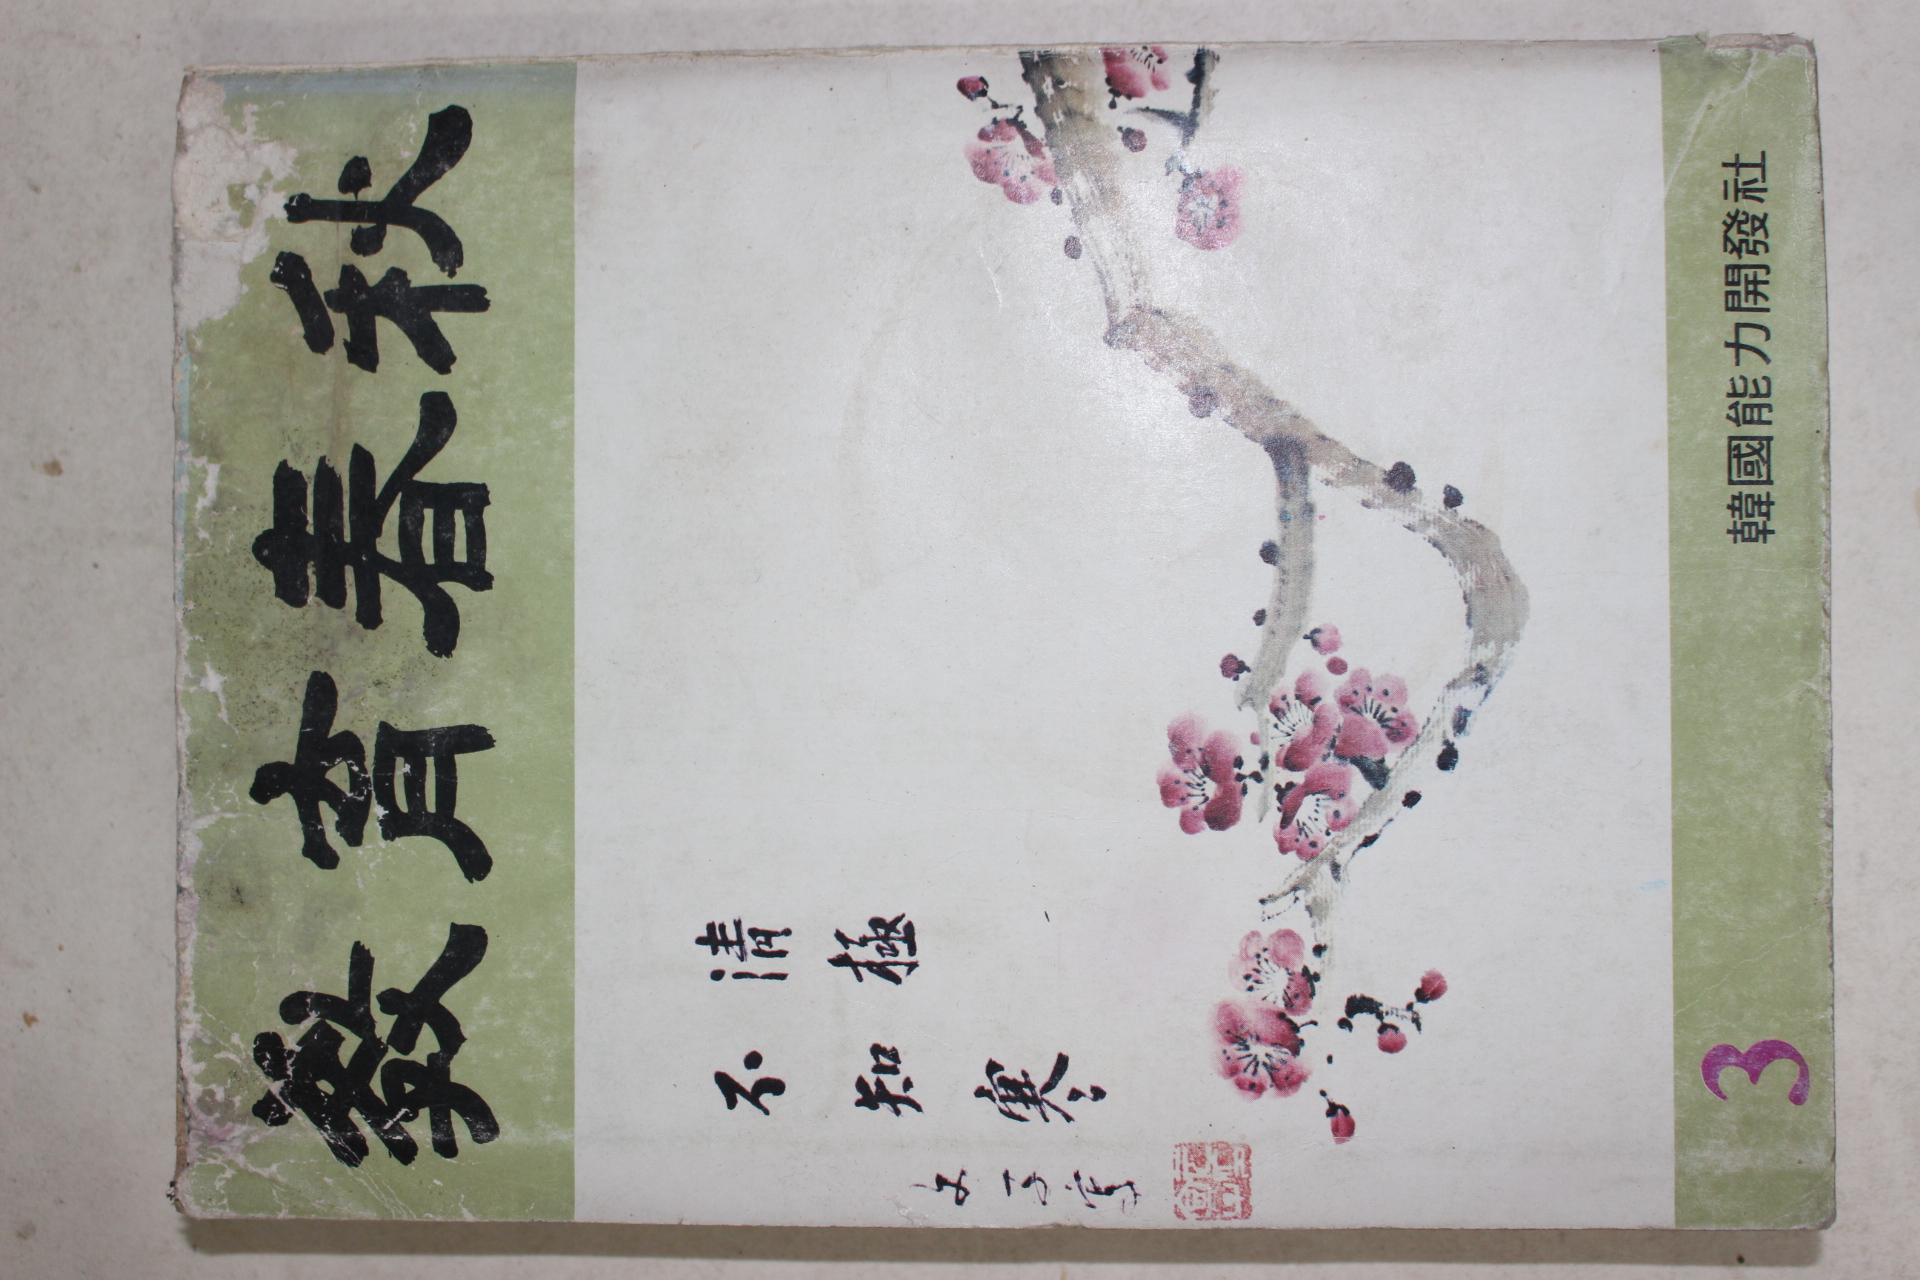 發育春秋
清極
不知寒
3
韓國能力開發社